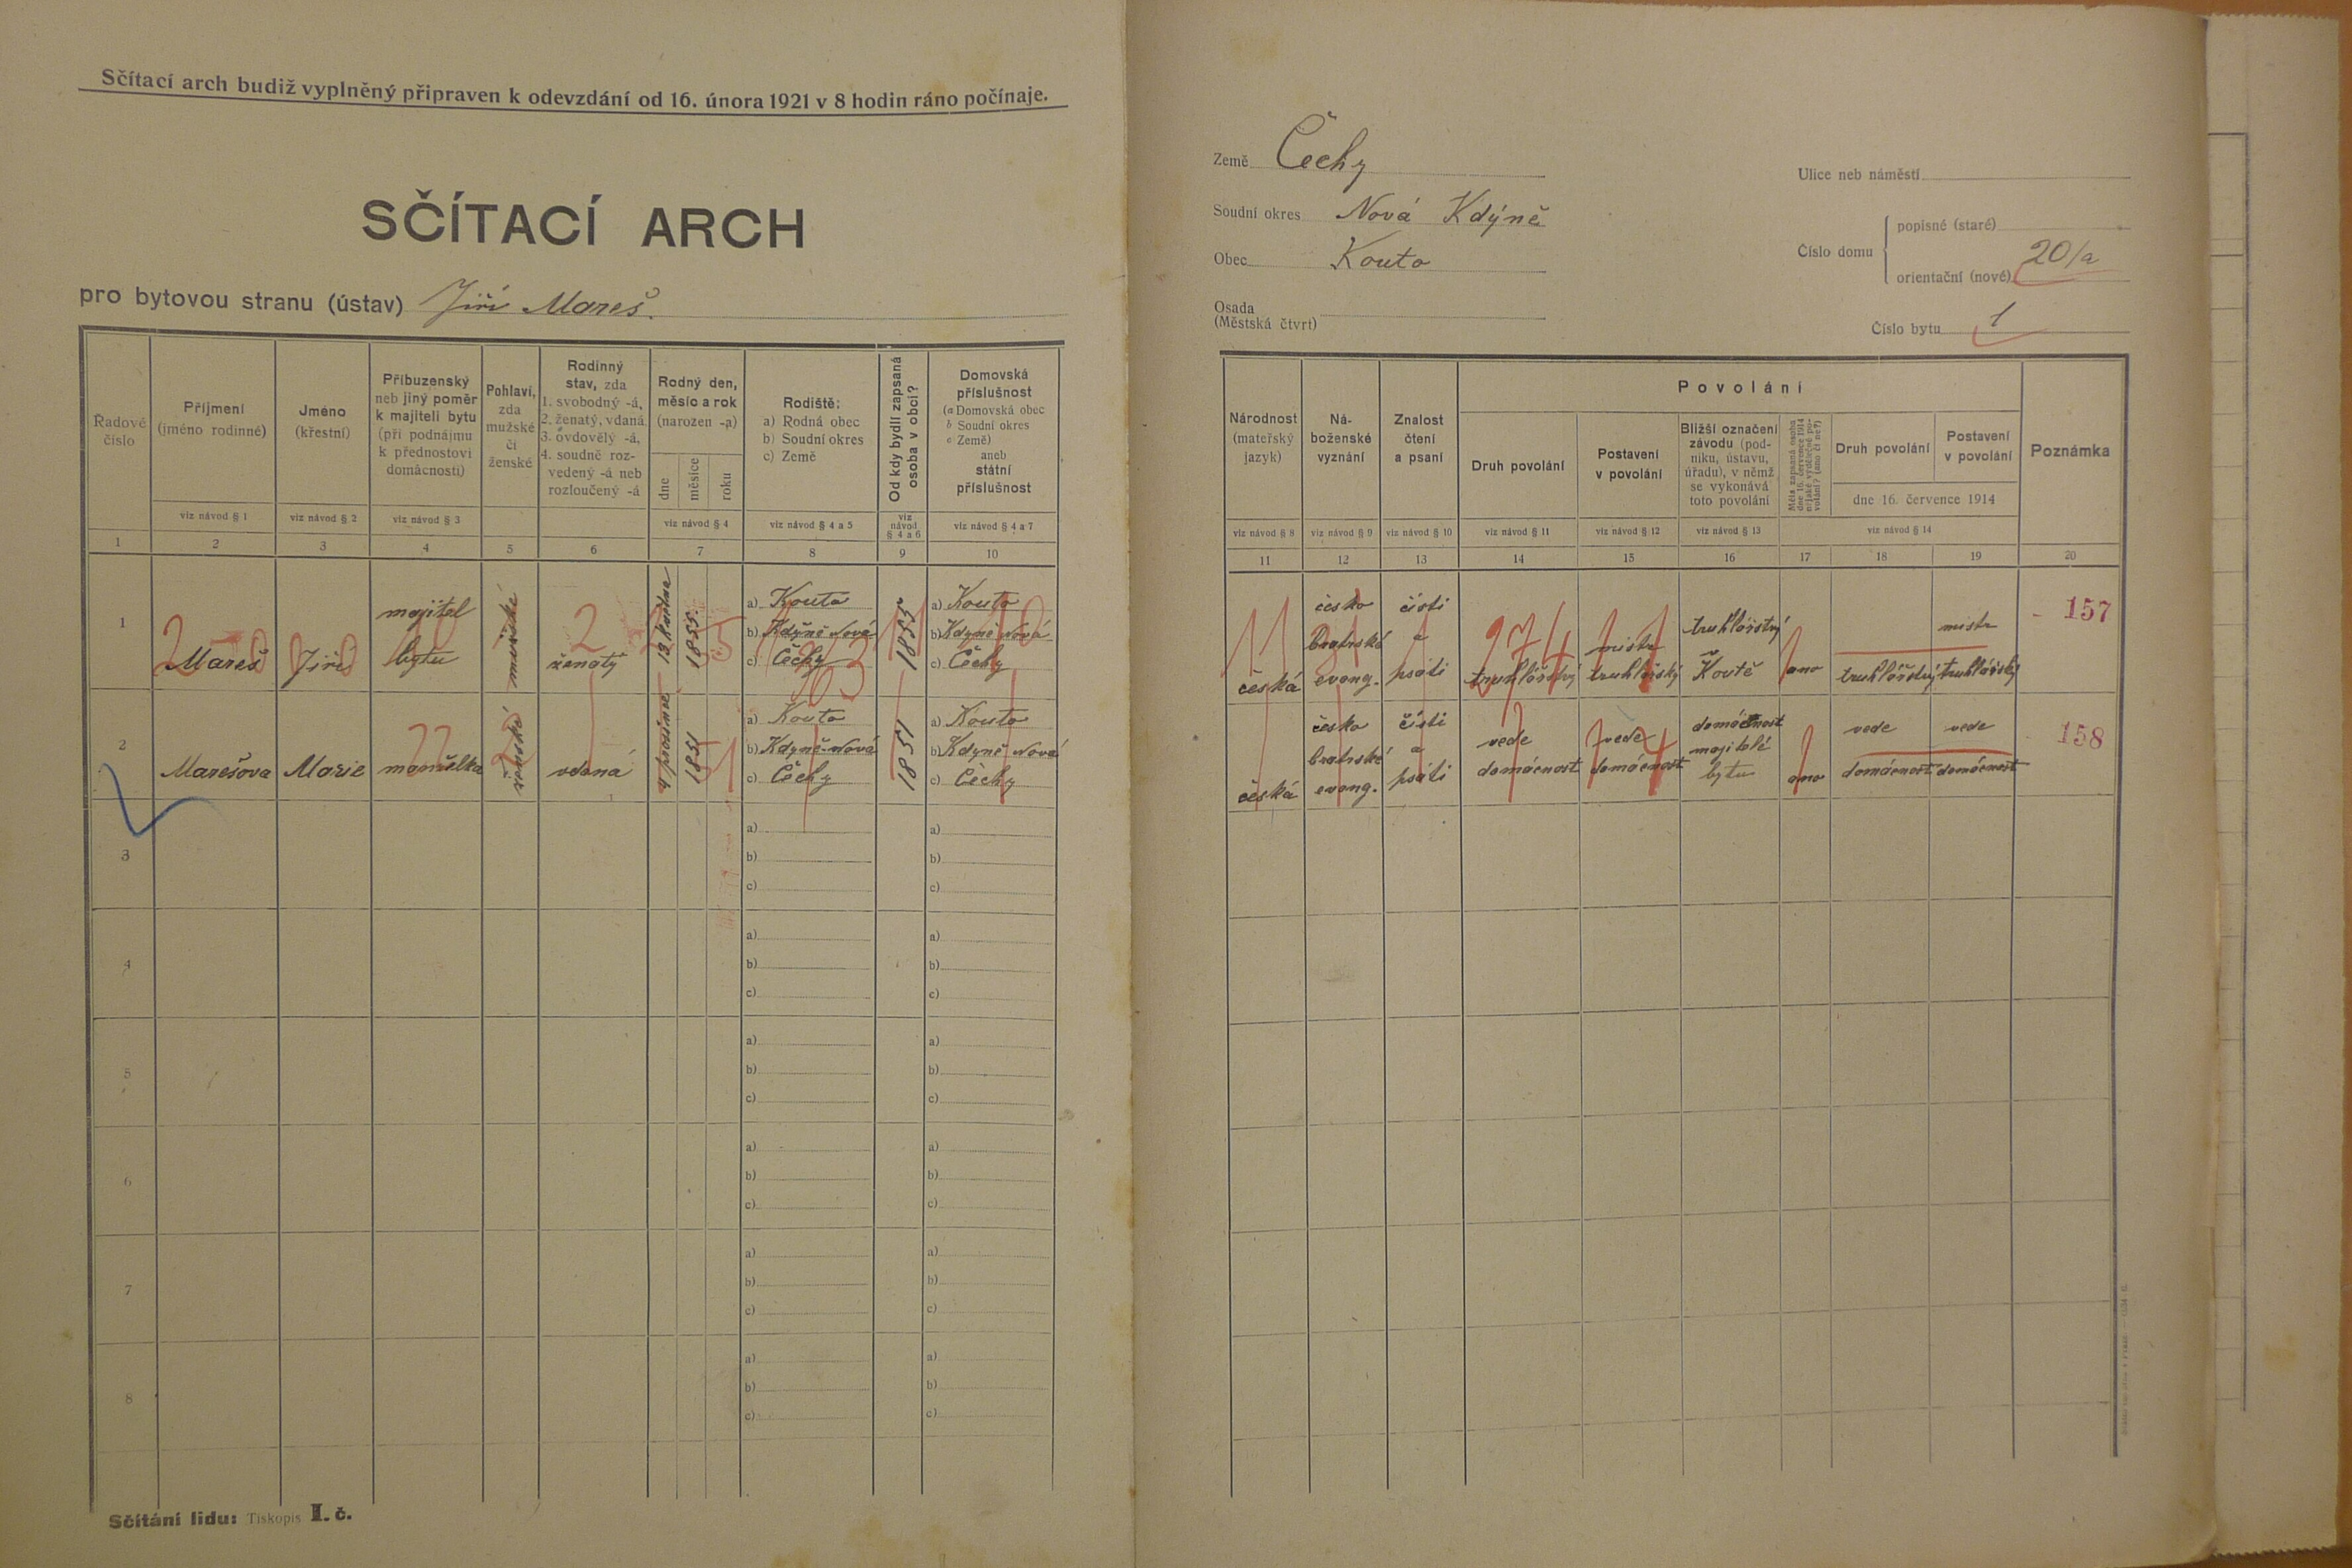 Sčítací arch budiž vyplněný připraven k odevzdání od 16. února 1921 v 8 hodin ráno počínaje.
SČÍTACÍ ARCH
pro bytovou stranu (ústav) Jiří Mareš.
Řadové číslo
1
Příjmení
(jméno rodinné)
viz návod § 1
2
Jméno
(křestní)
viz návod § 2
3
Příbuzenský
neb jiný poměr
k majiteli bytu
(při podnájmu
k přednostovi
domácnosti)
viz návod § 3
4
Pohlaví,
zda
mužské
či
ženské
5
Rodinný
stav, zda
1. svobodný -á,
2. ženatý, vdaná
3. ovdovělý -á,
4. soudně roz-
vedený -á neb
rozloučený -á
6
Rodný den,
měsíc a rok
(narozen -a)
dne
měsíce
roku
viz návod § 4
7
Rodiště:
a) Rodná obec
b) Soudní okres
c) Země
viz návod § 4 a 5
8
Od kdy bydlí zapsaná
osoba v obci?
viz
návod
§ 4 a 6
9
Domovská
příslušnost
(a Domovská obec
b Soudní okres
c Země)
aneb
státní
příslušnost
viz návod § 4 a 7
10
1
Mareš
Jiří
majitel
bytu
mužské
2
ženatý
12 května
1855
a) Kouto
b) Kdýně Nová
c) Čechy
1855
a) Kouto
b) Kdyně Nová
c) Čechy
2
Marešova
Marie
manželka
ženské
vdaná
4 prosince
1851
a) Kouto
b) Kdyně Nová
c) Čechy
1851
a) Kouto
b) Kdyně Nová
c) Čechy
3
a)
b)
c)
a)
b)
c)
4
a)
b)
c)
a)
b)
c)
5
a)
b)
c)
a)
b)
c)
6
a)
b)
c)
a)
b)
c)
7
a)
b)
c)
a)
b)
c)
8
a)
b)
c)
a)
b)
c)
Sčítání lidu: Tiskopis I. č.
Země Čechy
Soudní okres Nová Kdýně
Obec Kouto
Osada
(Městská čtvrt)
Ulice neb náměstí
Číslo domu
popisné (staré)
orientační (nové) 20/a
Číslo bytu 1
Národnost
(mateřský
jazyk)
viz návod § 8
11
Ná-
boženské
vyznání
viz návod § 9
12
Znalost
čtení
a psaní
viz návod § 10
13
Povolání
Druh povolání
viz návod § 11
14
Postavení
v povolání
viz návod § 12
15
Bližší označení
závodu (pod-
niku, ústavu,
úřadu), v němž
se vykonává
toto povolání
viz návod § 13
16
Měla zapsaná osoba
dne 16. července 1914
nějaké výdělečné po-
volání? (ano či ne?)
17
Druh povolání
18
Postavení
v povolání
19
dne 16. července 1914
viz návod § 14
Poznámka
20
česká
česko
bratrské
evang.
čísti
a
psáti
274
truhlářský
mistr
truhlářský
truhlářství
v
Koutě
ano
truhlářský
mistr
truhlářský
157
česká
česko
bratrské
evang.
čísti
a
psáti
vede
domácnost
vede
domácnost
domácnost
majitelé
bytu
ano
vede
domácnost
vede
domácnost
158